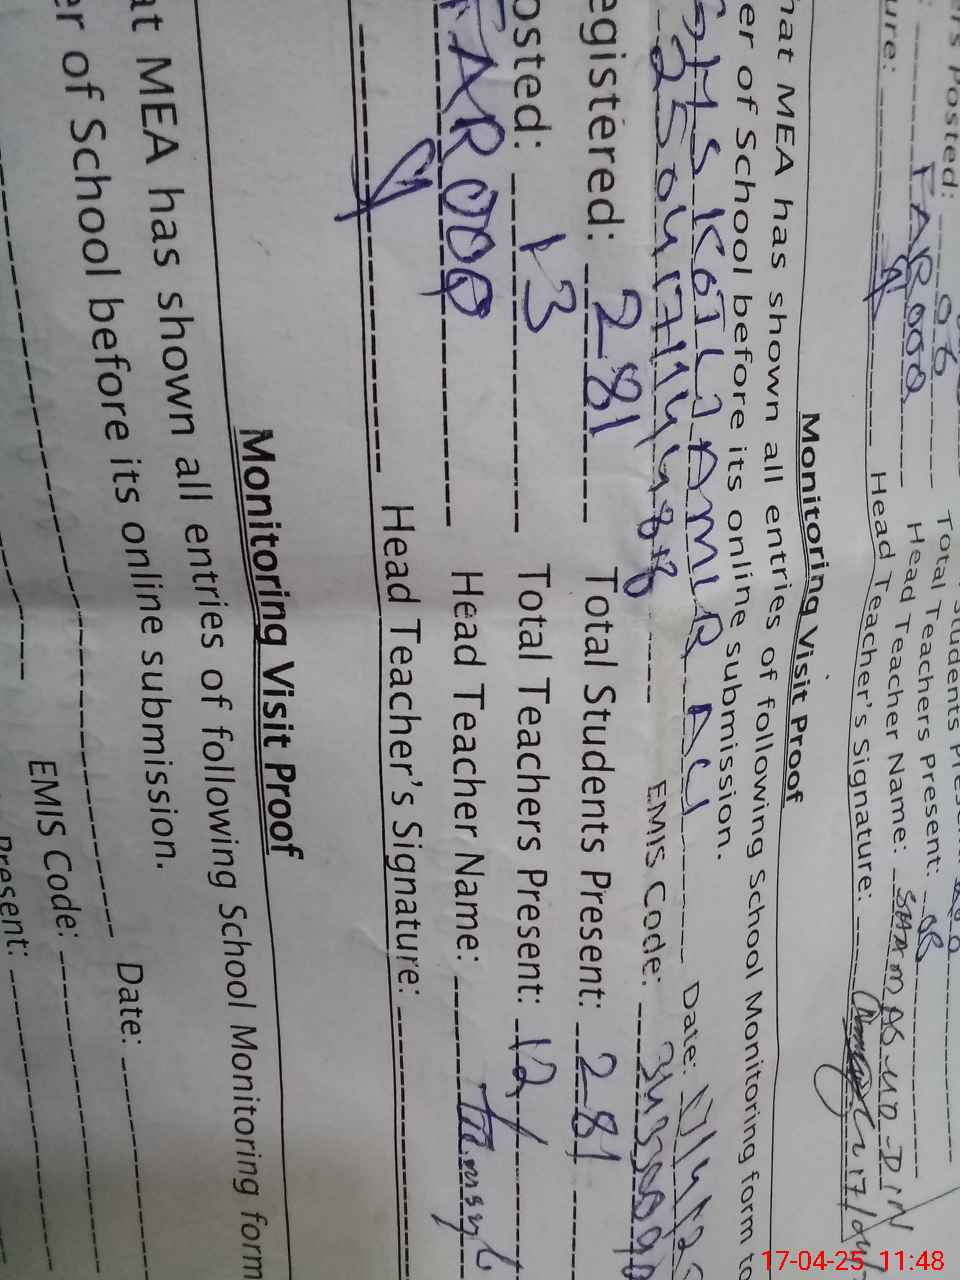 ers Posted: 06 Total Teachers Present: 06
FAROOQ Head Teacher Name: SHAMAS-UD-DIN
ure: Head Teacher's Signature: 17/04/
Monitoring Visit Proof
hat MEA has shown all entries of following School Monitoring form to
er of School before its online submission.
AMIR Date: 17/4/2
EMIS Code:
egistered: 281 Total Students Present: 281
osted: 13 Total Teachers Present: 12
FAROOQ Head Teacher Name:
Head Teacher's Signature:
Monitoring Visit Proof
at MEA has shown all entries of following School Monitoring form
er of School before its online submission.
Date:
EMIS Code:
Present:
17-04-25 11:48